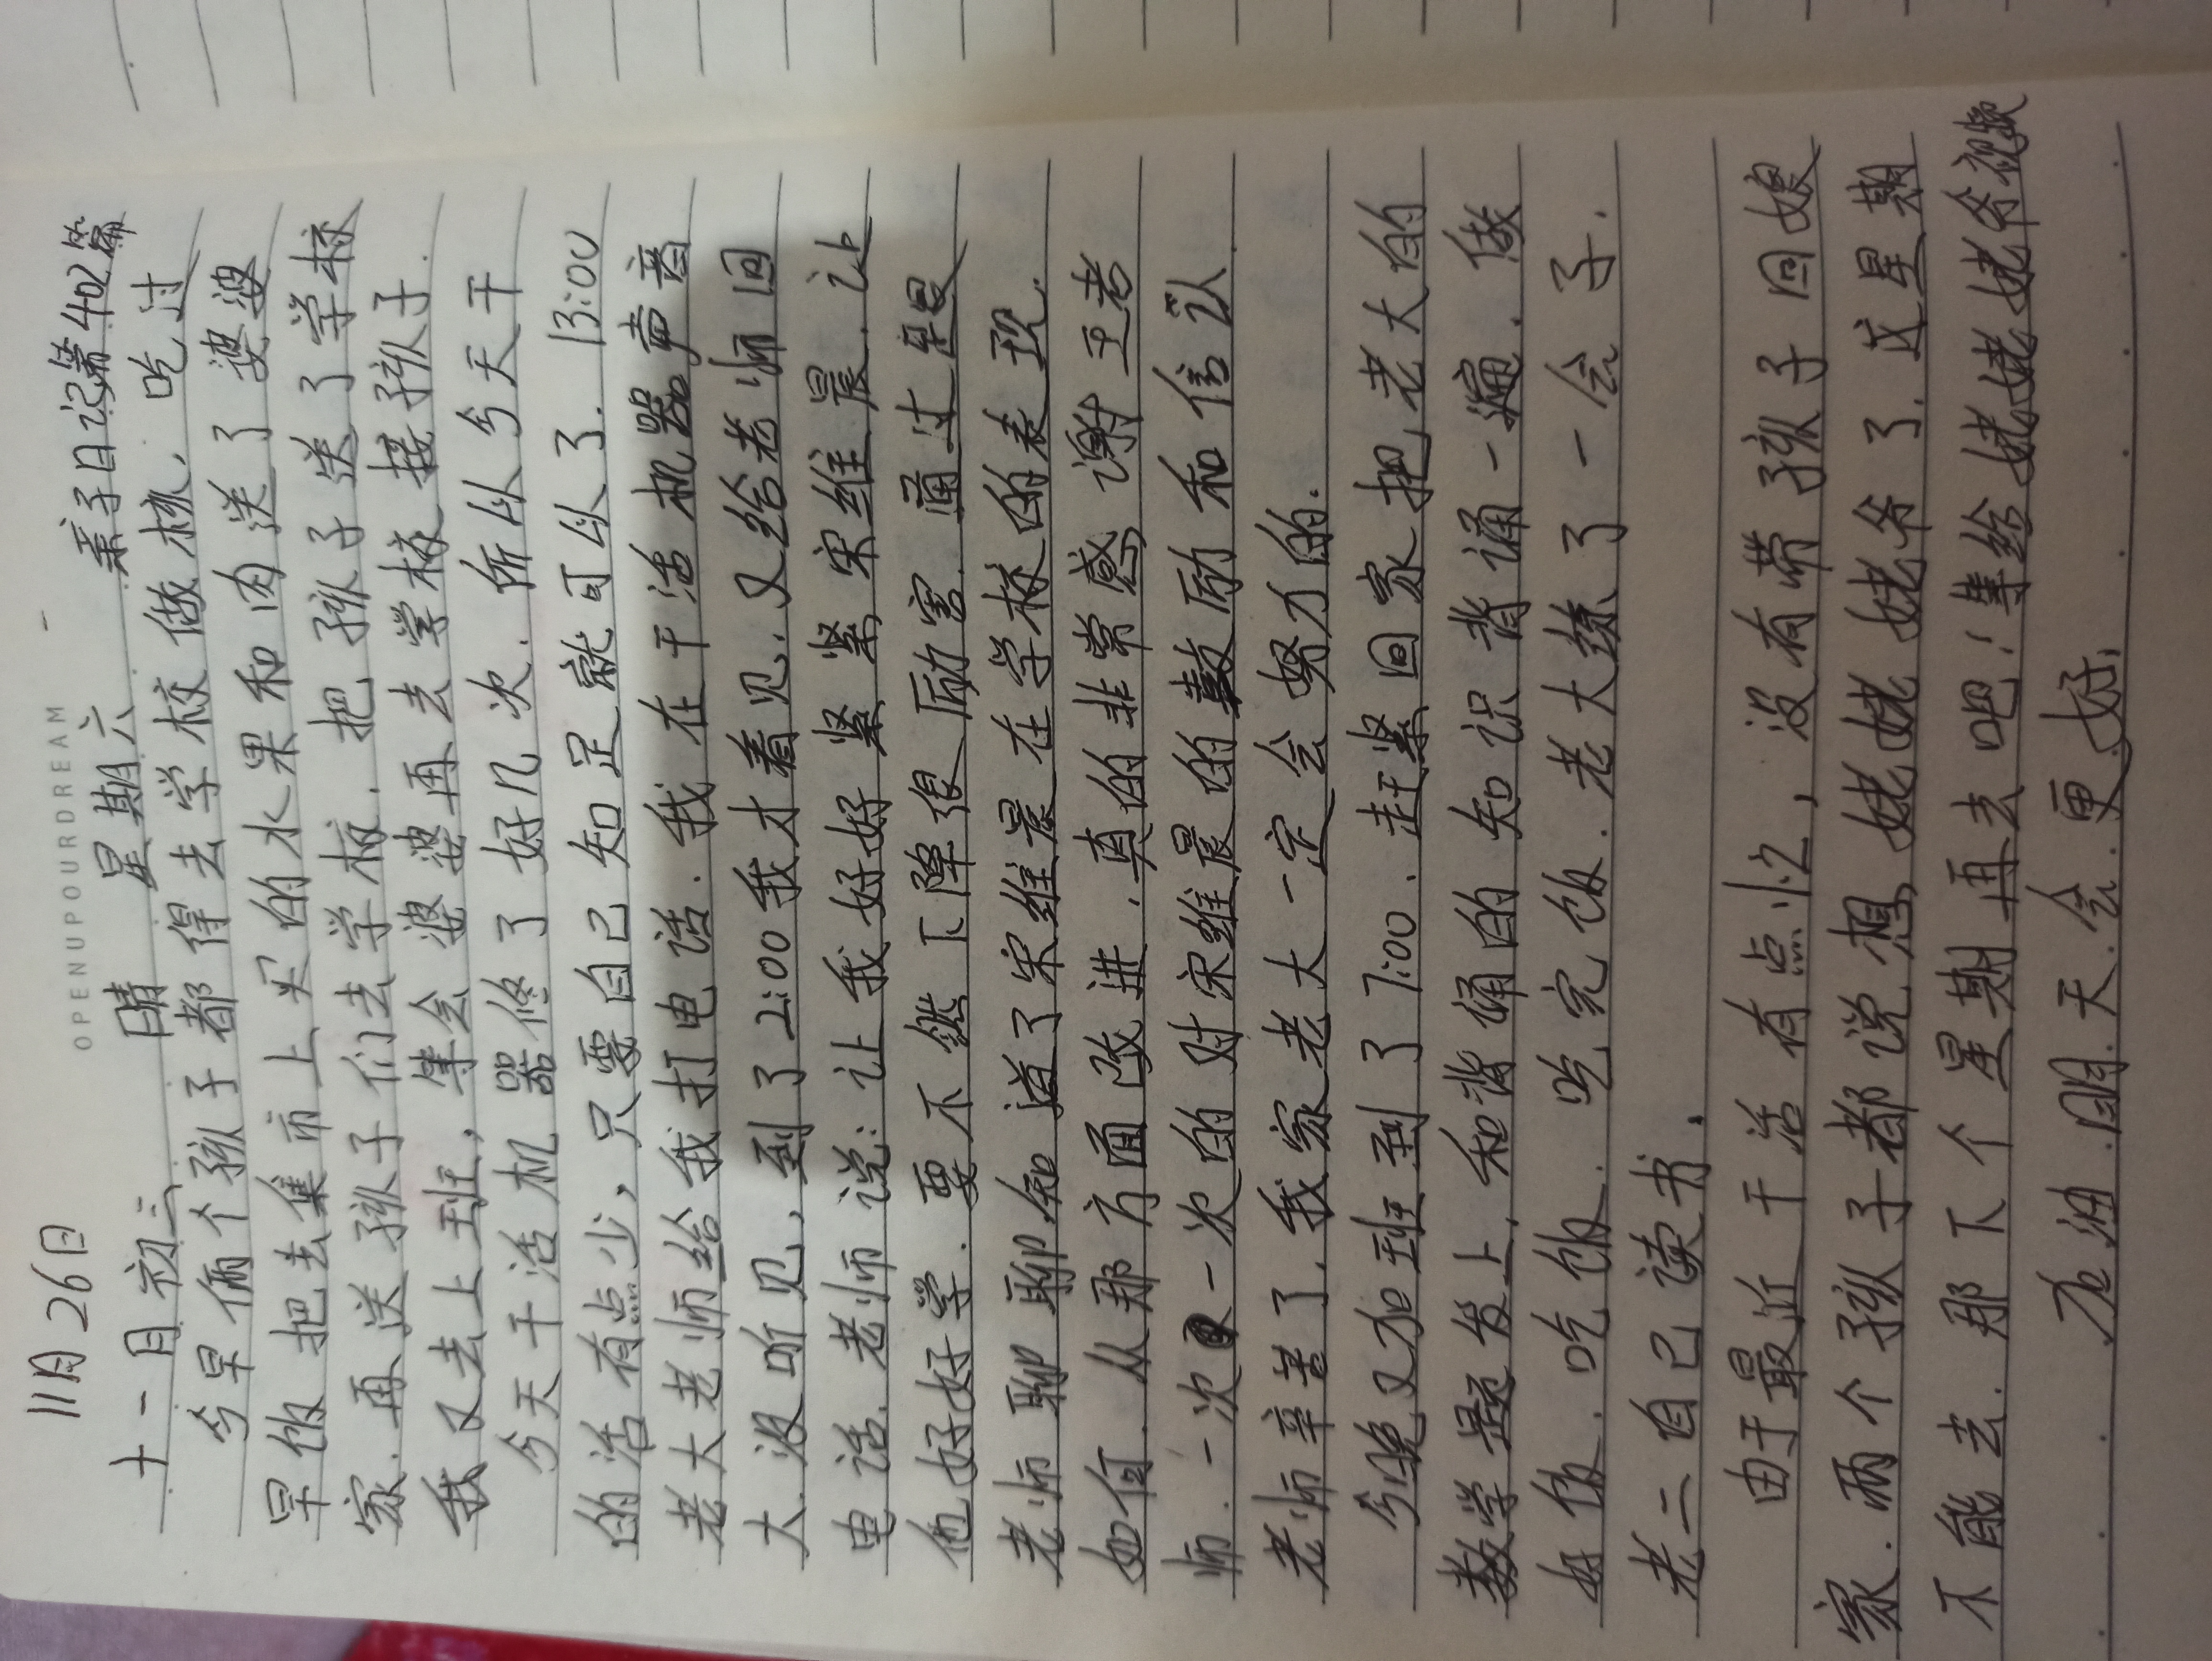 OPENUPOURDREAM
11月26日
十一月初三 晴 星期六 亲子日记第402篇
今早俩个孩子都得去学校做核，吃过
早饭把去集市上买的水果和肉送了婆婆
家.再送孩子们去学校.把孩子送了学校
我又去上班，等会婆婆再去学校接孩子.
今天干活机器修了好几次.所以今天干
的活有点少，只要自己知足就可以了.13:00
老大老师给我打电话.我在干活机器声音
大.没听见，到了2:00我才看见.又给老师回
电话.老师说:让我好好紧紧紧宋维晨.让
他好好学.要不然下降很励害.通过跟
老师聊聊知道了宋维晨在学校的表现.
如何.从那方面改进.真的非常感谢王老
师.一次一次的对宋维晨的鼓励和信认.
老师辛苦了.我家老大一定会努力的.
今晚又加班到了7:00.赶紧回家把老大的
数学题发上.和背诵的知识背诵一遍.做
好饭.吃饭.吃完饭.老大练了一会子.
老二自己读书.
由于最近干活有点忙，没有带孩子回娘
家.两个孩子都说想姥姥姥爷了.这星期
不能去.那下个星期再去吧!等给姥姥姥爷视频
加油.明天会更好!